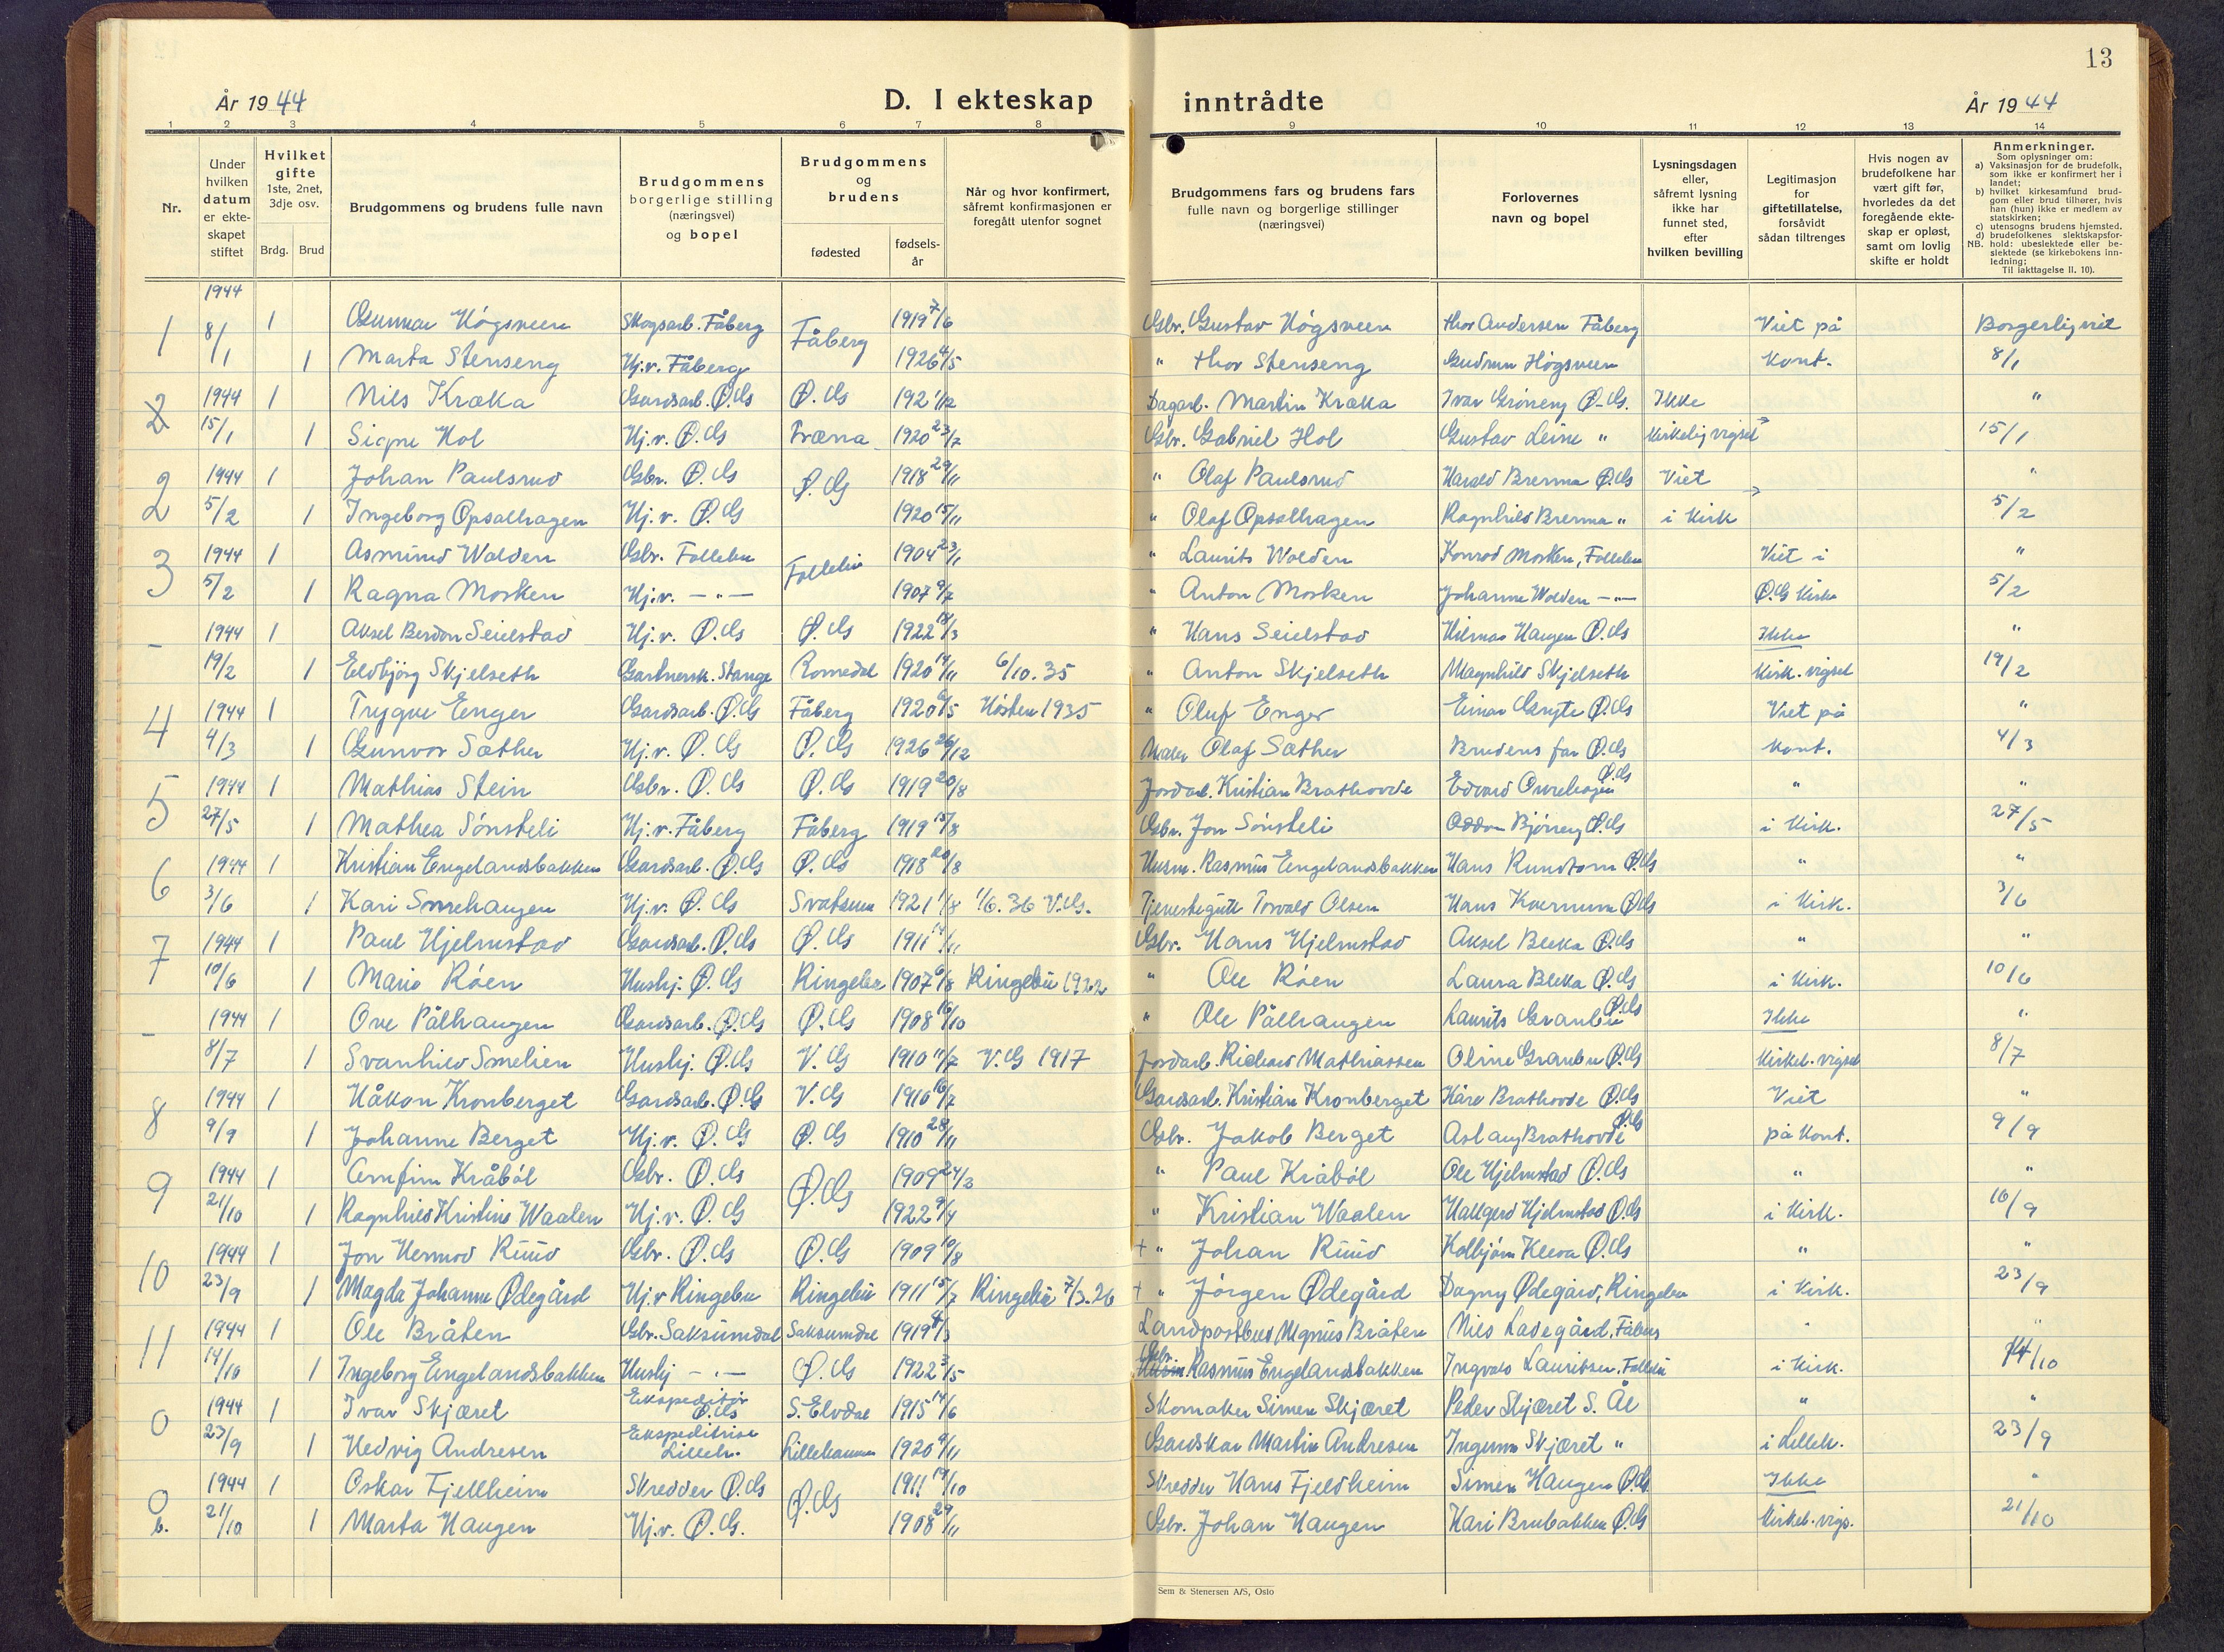 År 1944
D. I ekteskap
inntrådte
13
År 1944
1 2 3 4 5 6 7 8 9 10 11 12 13 14
Nr.
Under hvilken datum er ekteskapet stiftet
Hvilket gifte 1ste, 2net, 3dje osv.
Brdg. Brud
Brudgommens og brudens fulle navn
Brudgommens borgerlige stilling (næringsvei) og bopel
Brudgommens og brudens
fødested
fødselsår
Når og hvor konfirmert, såfremt konfirmasjonen er foregått utenfor sognet
Brudgommens fars og brudens fars fulle navn og borgerlige stillinger (næringsvei)
Forlovernes navn og bopel
Lysningsdagen eller, såfremt lysning ikke har funnet sted, efter hvilken bevilling
Legitimasjon for giftetillatelse, forsåvidt sådan tiltrenges
Hvis nogen av brudefolkene har vært gift før, hvorledes da det foregående ekteskap er opløst, samt om lovlig skifte er holdt
Anmerkninger.
Som oplysninger om:
a) Vaksinasjon for de brudefolk, som ikke er konfirmert her i landet;
b) hvilket kirkesamfund brudgom eller brud tilhører, hvis han (hun) ikke er medlem av statskirken;
c) utensogns brudens hjemsted.
d) brudefolkenes slektskapsforhold: ubeslektede eller beslektede (se kirkebokens innledning;
NB. Til iakttagelse II. 10).
1944
1 8/1 1 Gunnar Högsveen Skogsarb. Fåberg Fåberg 1919 7/6 Gbr. Gustav Högsveen Thor Andersen Fåberg Viet på Borgerlig viet
1 Marta Stenseng Hj.v. Fåberg 1926 4/5 " Thor Stenseng Gudrun Högsveen Kont. 8/1
2 1944 1 Nils Kræka Gardsarb. Ø.G Ø.G 1921 Dagarb. Martin Kræka Ivar Gröneng Ø.G. Ikke "
15/1 1 Signe Hol Hj.v. Ø.G Fræna 1920 23/7 Gbr. Gabriel Hol Gustav Leine " Kirkelig vigsel 15/1
2 1944 1 Johan Paulsrud Gbr. Ø.G Ø.G 1918 29/11 " Olaf Paulsrud Harald Brenna Ø.G Viet "
5/2 1 Ingeborg Opsalhagen Hj.v. Ø.G 1920 15/11 " Olaf Opsalhagen Ragnhild Brenna " i Kirk 5/2
3 1944 1 Asmund Wolden Gbr. Follebu Follebu 1904 23/1 " Laurits Wolden Konrad Mosken, Follebu Viet i "
5/2 1 Ragna Mosken Hj.v. - " - 1907 9/2 " Anton Mosken Johanne Wolden - " - Ø.G Kirke 5/2
- 1944 1 Aksel Berdon Seielstad Hj.v. Ø.G Ø.G 1922 " Hans Seielstad Hilmar Haugen Ø.G Ikke "
19/2 1 Eldbjörg Skjelseth Gartnersk. Stange Romedal 1920 14/11 6/10.35 " Anton Skjelseth Magnhild Skjelseth Kirk. vigsel 19/2
4 1944 1 Trygve Enger Gardsarb. Ø.G Fåberg 1920 Hösten 1935 " Oluf Enger Einar Gryte Ø.G Viet på "
4/3 1 Gunvor Sæther Hj.v. Ø.G Ø.G 1926 26/12 Maler Olaf Sæther Brudens far Ø.G Kont. 4/3
5 1944 1 Mathias Stein Gbr. Ø.G Ø.G 1919 20/8 Jordarb. Kristian Brathovde Edvard Ø.G " "
27/5 1 Mathea Sönsteli Hj.v. Fåberg Fåberg 1919 15/8 Gbr. Jon Sönsteli Oddm Bjöneng Ø.G i Kirk. 27/5
6 1944 1 Kristian Engelandsbakken Gardsarb. Ø.G Ø.G 1918 Husm. Rasmus Engelandsbakken Hans Rundtom Ø.G " "
3/6 1 Kari Smrehaugen Hj.v. Ø.G Svatsum 1921 1/8 1/6.36 V.G. Tjenestegutt Torvald Olsen Hans Kvernum Ø.G i Kirk. 3/6
7 1944 1 Paul Hjelmstad Gardsarb. Ø.G Ø.G 1911 Gbr. Hans Hjelmstad Aksel Bleka Ø.G " "
10/6 1 Marie Röen Hushj. Ø.G Ringebu 1907 6/8 Ringebu 1922 " Ole Röen Laura Bleka Ø.G i Kirk. 10/6
- 1944 1 Ove Pålhaugen Gardsarb. Ø.G Ø.G 1908 16/10 " Ole Pålhaugen Laurits Granbu Ø.G Ikke "
8/7 1 Svanhild Smelien Hushj. Ø.G V.G 1910 11/7 V.G 1917 Jordarb. Richard Mathiassen Oline Granbu Ø.G Kirkel. vigsel 8/7
8 1944 1 Håkon Kronberget Gardsarb. Ø.G V.G 1910 16/7 Gardsarb. Kristian Kronberget Kåre Brathovde Ø.G Viet "
9/9 1 Johanne Berget Hj.v. Ø.G Ø.G 1910 28/11 Gbr. Jakob Berget Aslaug Brathovde Ø.G på Kont. 9/9
9 1944 1 Arnfinn Kråböl Gbr. Ø.G Ø.G 1909 24/3 " Paul Kråböl Ole Hjelmstad Ø.G " "
21/10 1 Ragnhild Kristine Waalen Hj.v. Ø.G 1922 9/4 " Kristian Waalen Hallgerd Hjelmstad Ø.G i Kirk. 16/9
10 1944 1 Jon Hermod Ruud Gbr. Ø.G Ø.G 1909 10/8 + " Johan Ruud Kolbjörn Kleva Ø.G " "
23/9 1 Magda Johanne Ødegård Hj.v Ringebu Ringebu 1911 15/7 Ringebu 7/3.26 + " Jörgen Ødegård Dagny Ødegård, Ringebu i Kirk. 23/9
11 1944 1 Ole Bråten Gbr. Saksumdal Saksumdal 1919 Landpostbud Magnus Bråten Nils Ladegård, Fåberg " "
14/10 1 Ingeborg Engelandsbakken Hushj - " - Ø.G 1922 3/5 Gbr. Rasmus Engelandsbakken Ingvald Lauritsen, Follebu i Kirk. 14/10
0 1944 1 Ivar Skjæret Ekspeditör Ø.G S. Elvdal 1915 14/6 Skomaker Simen Skjæret Peder Skjæret S. Ål " "
23/9 1 Hedvig Andresen Ekspeditrise Lilleh. Lillehammer 1920 9/11 Gardskar Martin Andresen Ingunn Skjæret " i Lilleh. 23/9
0 1944 1 Oskar Fjellheim Skredder Ø.G Ø.G 1911 19/10 Skredder Hans Fjeldheim Simen Haugen Ø.G Ikke "
b. 21/10 1 Marta Haugen Hj.v. Ø.G. 1908 29/11 Gbr. Johan Haugen Kari Brubakken Ø.G Kirkel. vigs. 21/10
Sem & Stenersen A/S, Oslo